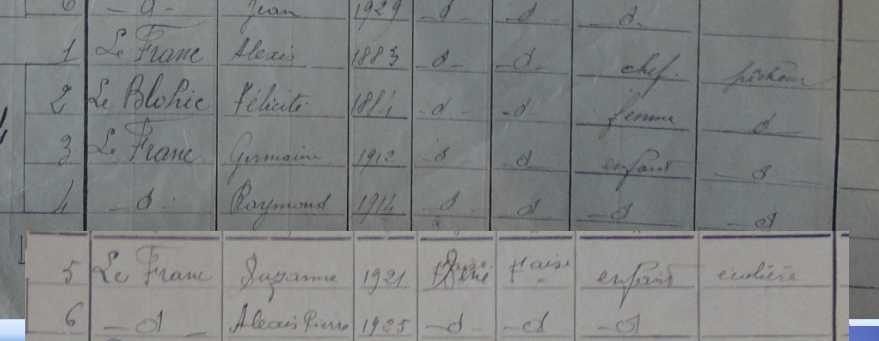 6 - d - Jean 1929 - d - - d - - d -
1 Le Franc Alexis 1883 - d - - d - chef pêcheur
2 Le Blohic Félicité 1884 - d - - d - femme d
3 Le Franc Germaine 1912 - d - - d enfant - d
4 - d - Raymond 1914 - d - d - d - d
5 Le Franc Suzanne 1921 fraise enfant écolière
6 - d - Alexis Pierre 1925 - d - - d - d